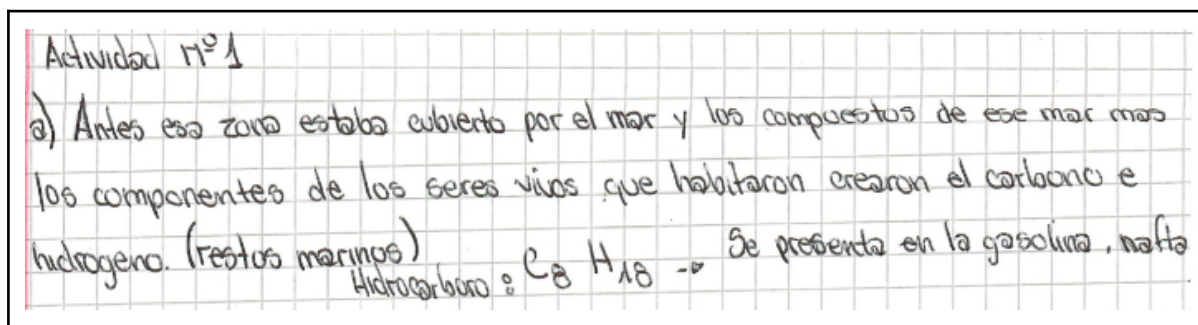 Actividad nº1
a) Antes esa zona estaba cubierto por el mar y los compuestos de ese mar mas
los componentes de los seres vivos que habitaron crearon el carbono e
hidrogeno. (restos marinos)
Hidrocarburo: C8 H18 → Se presenta en la gasolina, nafta